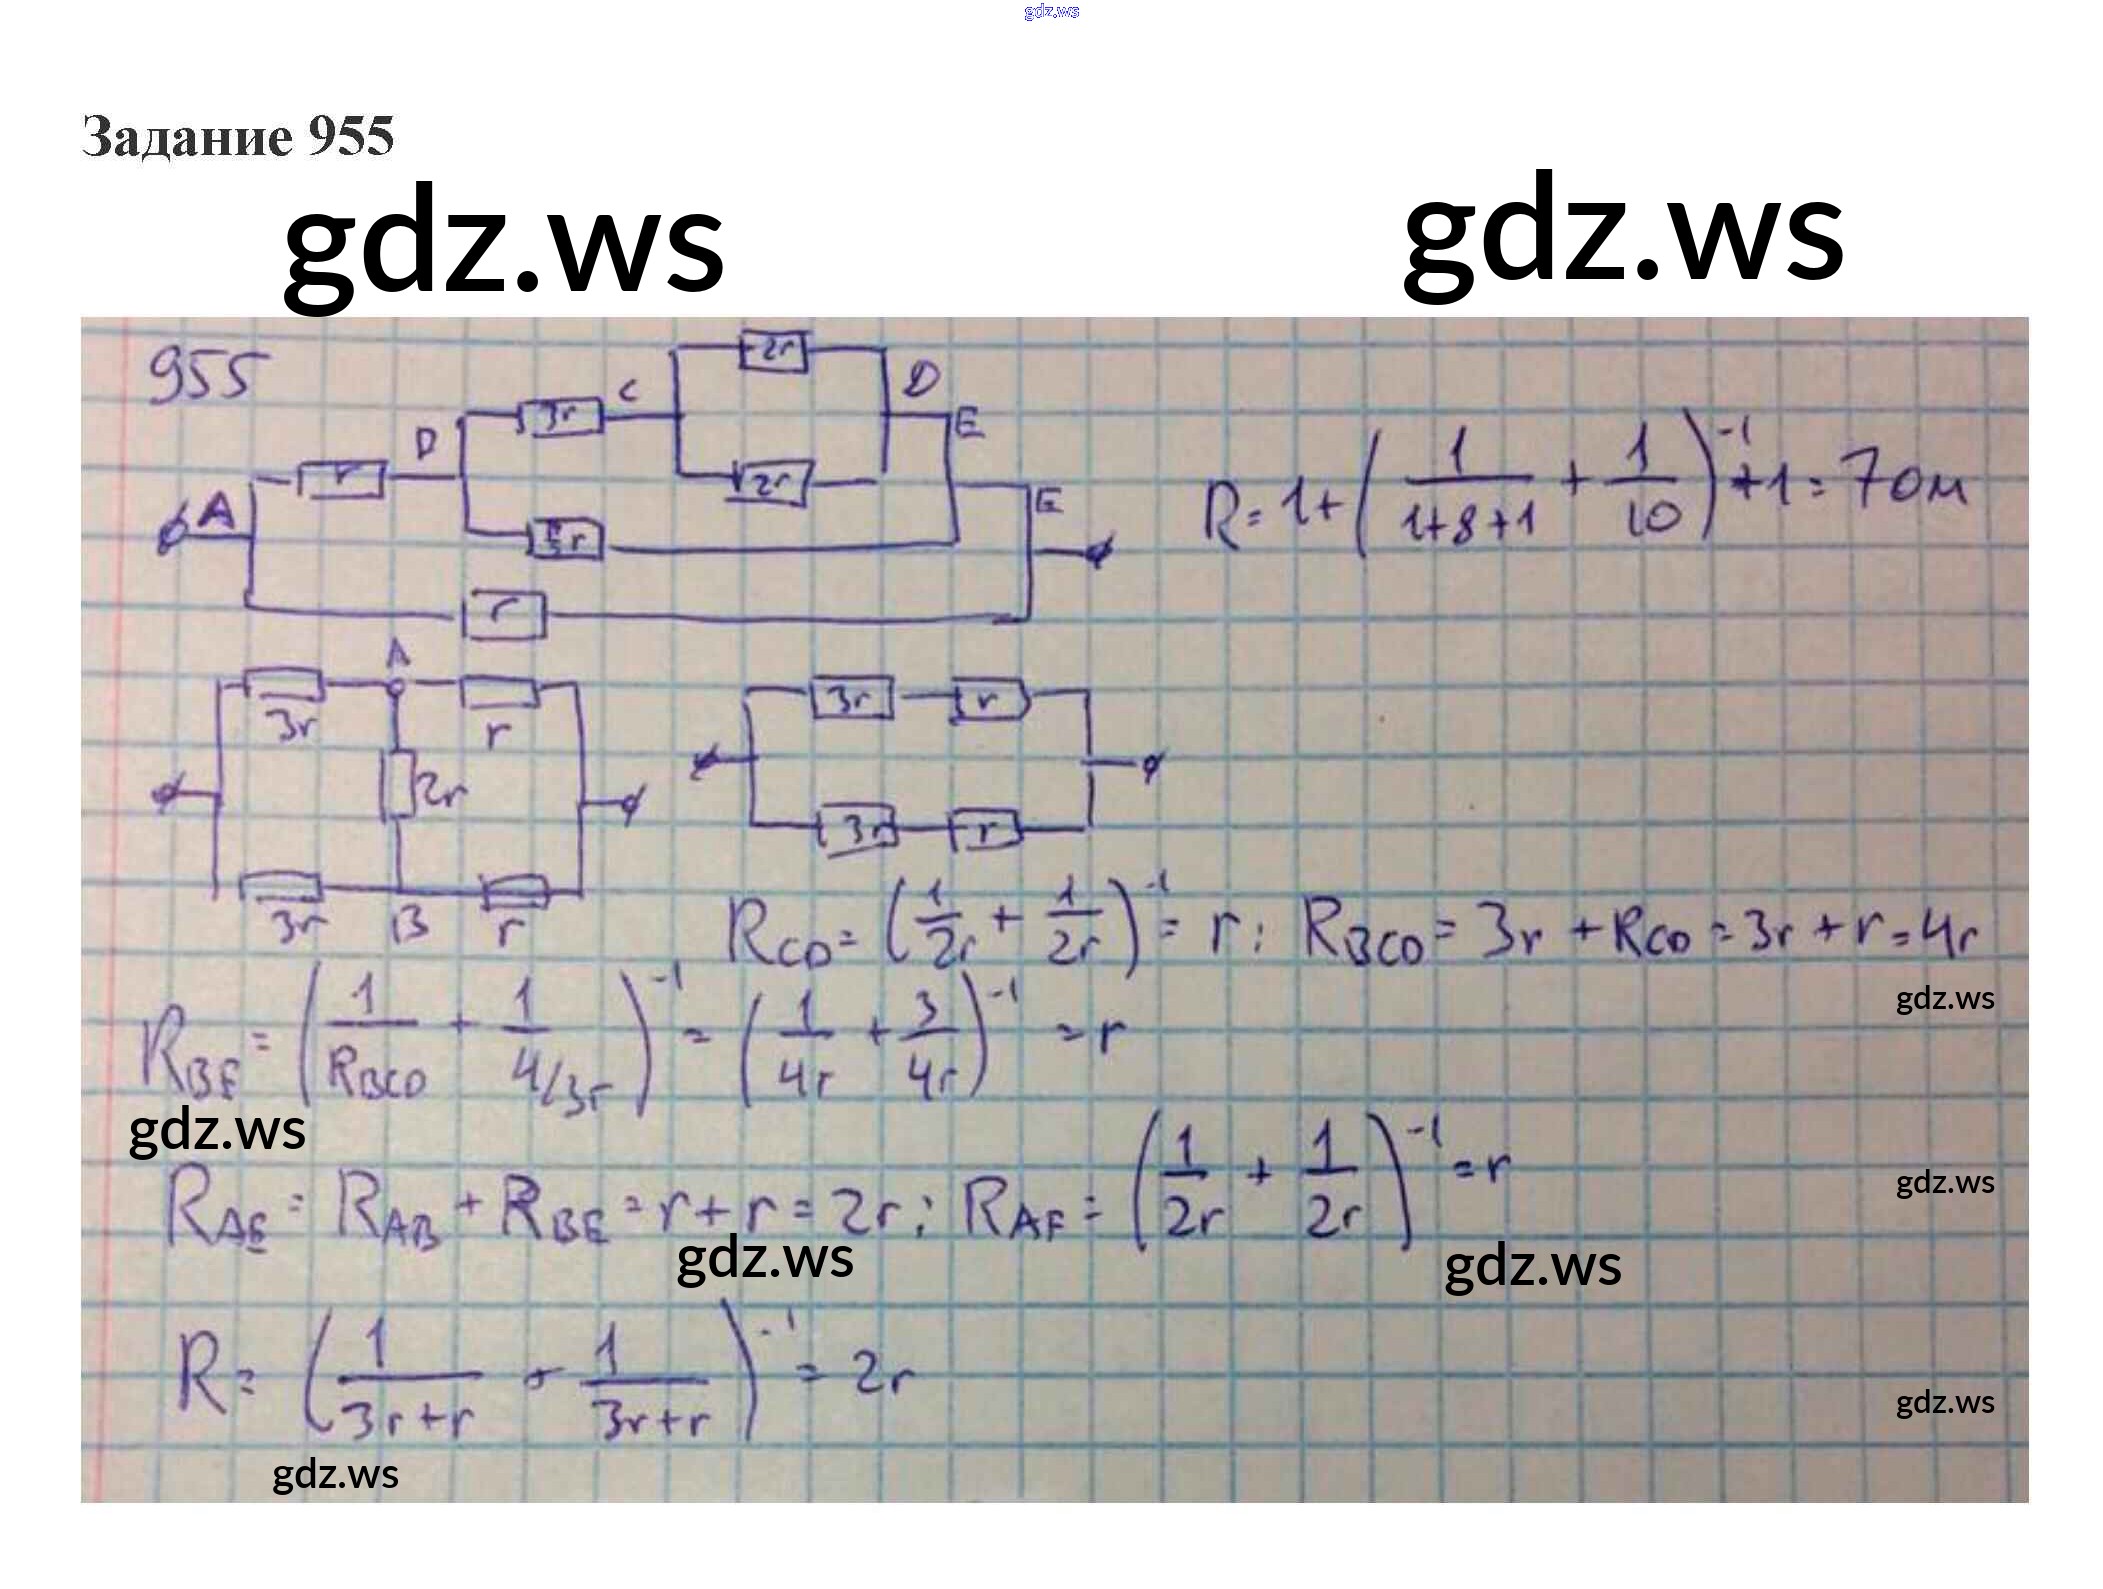 gdz.ws
Задание 955
gdz.ws gdz.ws
955
2r
3r C D
D E
r
2r
A E
r
r
R = 1+(1/(1+8+1) + 1/10)^-1 +1 = 7 Ом
A
3r r
2r
3r B r
3r r
3r r
R_CD = (1/2r + 1/2r)^-1 = r; R_BCD = 3r + R_CD = 3r + r = 4r
gdz.ws
R_BE = (1/R_BCD + 1/(4/3r))^-1 = (1/4r + 3/4r)^-1 = r
gdz.ws
R_AE = R_AB + R_BE = r + r = 2r; R_AF = (1/2r + 1/2r)^-1 = r
gdz.ws
gdz.ws gdz.ws
R = (1/(3r+r) + 1/(3r+r))^-1 = 2r
gdz.ws
gdz.ws